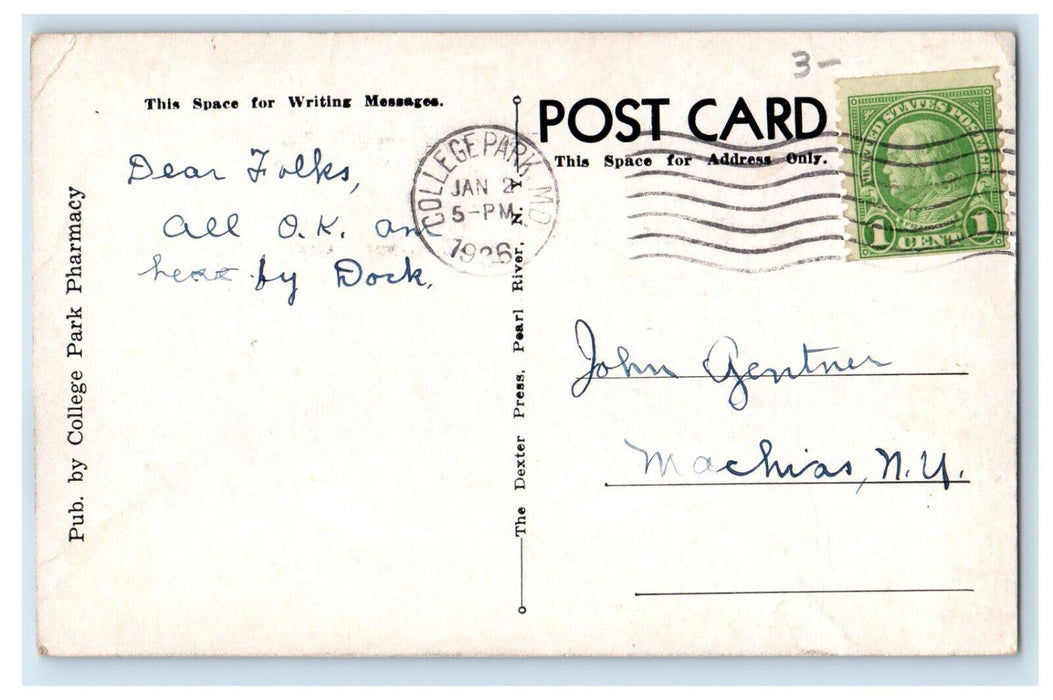 3-
This Space for Writing Messages.
POST CARD
This Space for Address Only.
COLLEGE PARK, MD.
JAN 2
5-PM
1936
UNITED STATES POSTAGE
1 CENT 1
Dear Folks,
All O.K. am
here by Dock.
Pub. by College Park Pharmacy
The Dexter Press, Pearl River, N. Y.
John Gentner
Machias, N.Y.